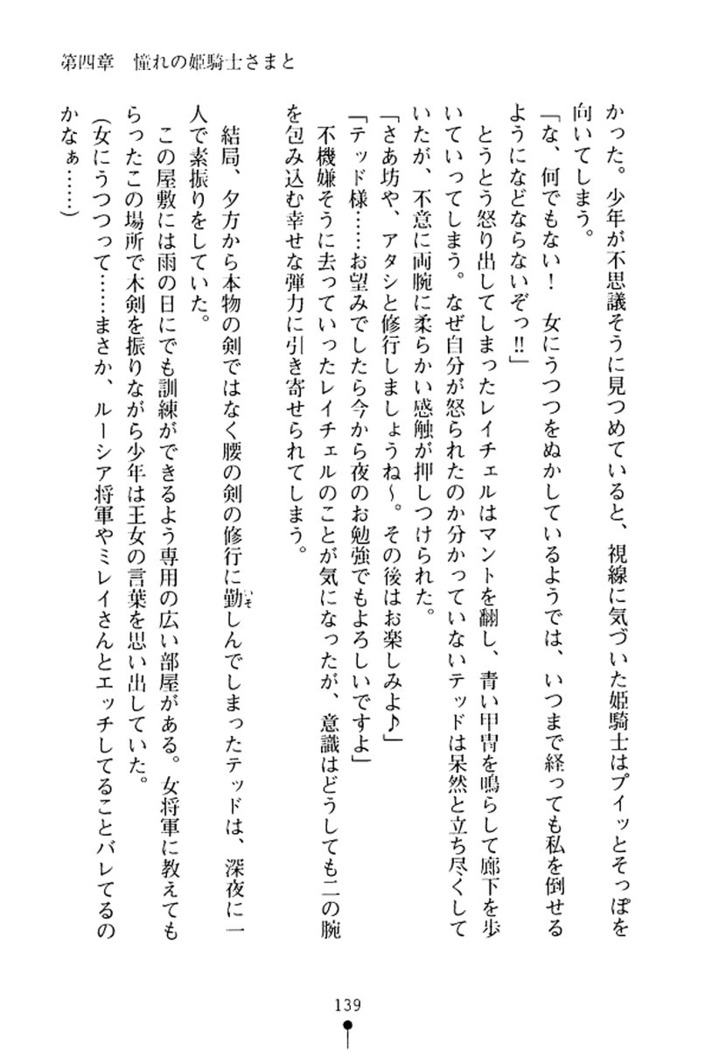 第四章　憧れの姫騎士さまと
かった。少年が不思議そうに見つめていると、視線に気づいた姫騎士はプイッとそっぽを
向いてしまう。
「な、何でもない！　女にうつつをぬかしているようでは、いつまで経っても私を倒せる
ようになどならないぞっ!!」
とうとう怒り出してしまったレイチェルはマントを翻し、青い甲冑を鳴らして廊下を歩
いていってしまう。なぜ自分が怒られたのか分かっていないテッドは呆然と立ち尽くして
いたが、不意に両腕に柔らかい感触が押しつけられた。
「さあ坊や、アタシと修行しましょうね～。その後はお楽しみよ♪」
「テッド様……お望みでしたら今から夜のお勉強でもよろしいですよ」
不機嫌そうに去っていったレイチェルのことが気になったが、意識はどうしても二の腕
を包み込む幸せな弾力に引き寄せられてしまう。
結局、夕方から本物の剣ではなく腰の剣の修行に勤いそしんでしまったテッドは、深夜に一
人で素振りをしていた。
この屋敷には雨の日にでも訓練ができるよう専用の広い部屋がある。女将軍に教えても
らったこの場所で木剣を振りながら少年は王女の言葉を思い出していた。
（女にうつつって……まさか、ルーシア将軍やミレイさんとエッチしてることバレてるの
かなぁ……）
139